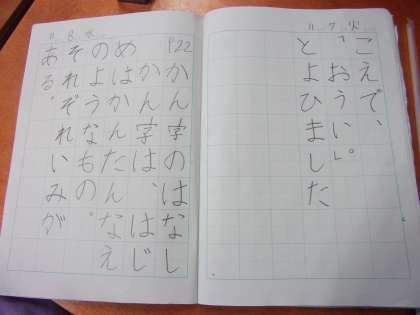 11 7 火
こえで、
「おうい」。
とよひました
11 8 水
P22
かん字のはなし
かん字は、はじ
めはかんたんなえ
のような​もの。
それぞれいみが
ある。